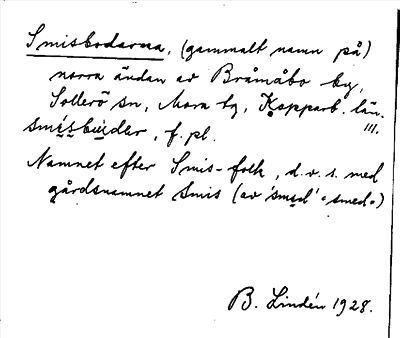 Smisbodarna, (gammalt namn på)
norra ändan av Bråmåbo by,
Sollerö sn, Mora tg, Kopparb. län.
III.
smísbùdar, f. pl.
Namnet efter Smis-folk, d.v.s. med
gårdsnamnet Smis (av 'smed' "smed")
B. Lindén 1928.